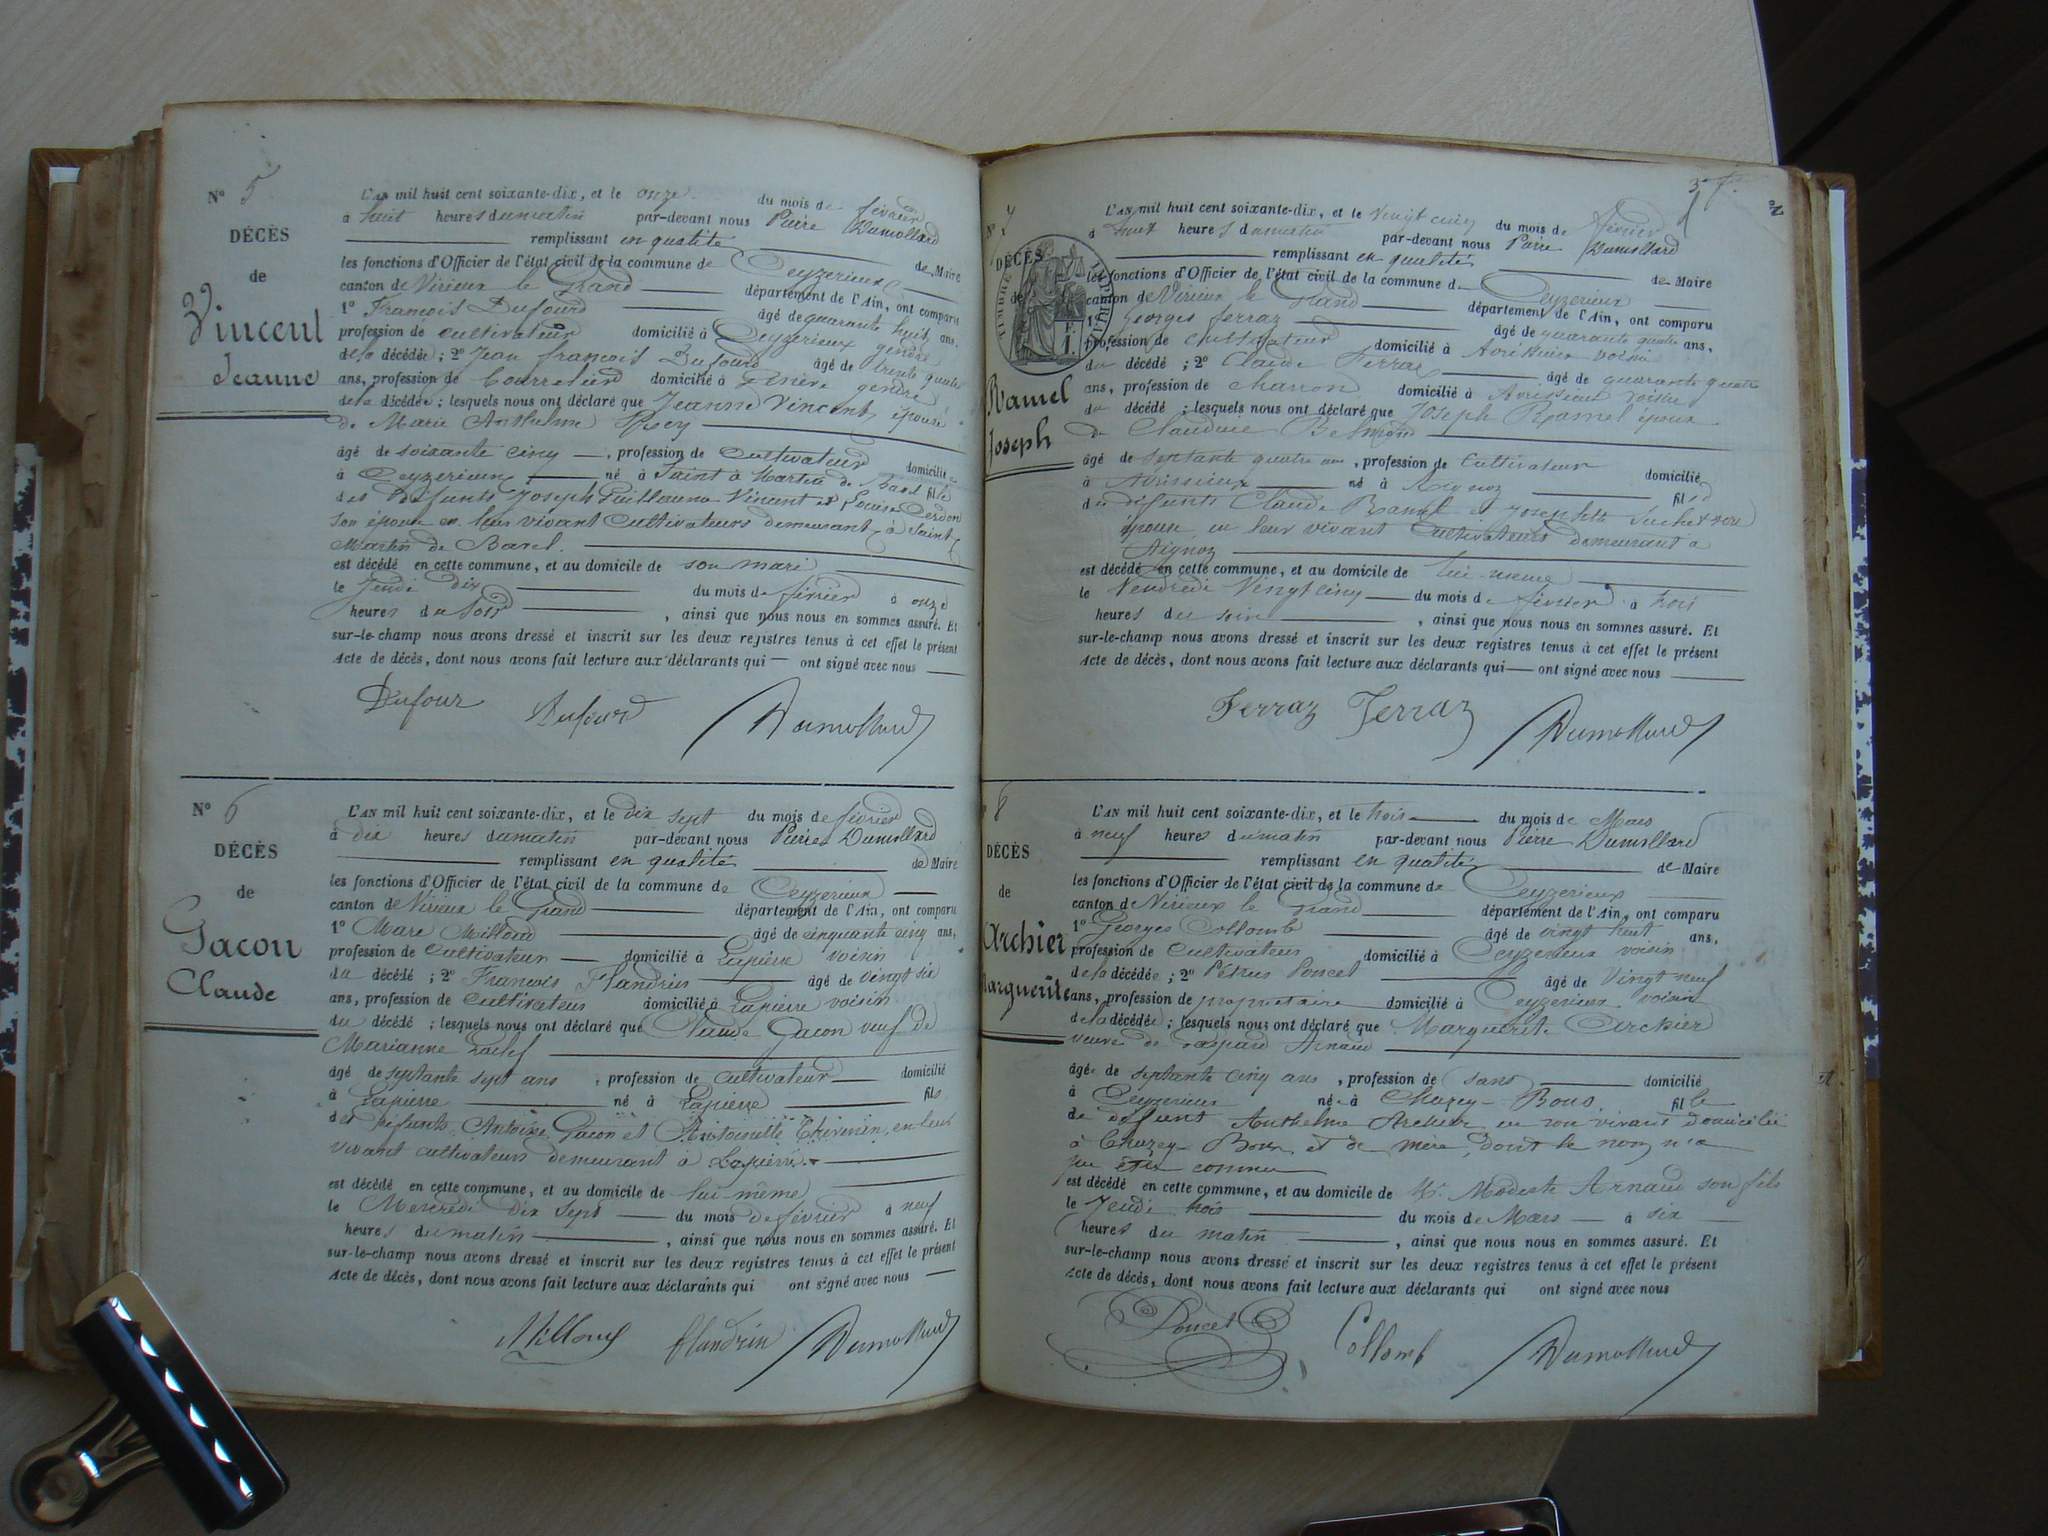 N° 5
DÉCÈS
de
Vincent
Jeanne
L'AN mil huit cent soixante-dix, et le onze du mois de février
à huit heures du matin par-devant nous Pierre Dumollard
remplissant en qualité de Maire
les fonctions d'Officier de l'état civil de la commune de Ceyzerieux
canton de Virieux le Grand département de l'Ain, ont comparu
1° François Dufourd âgé de quarante huit ans,
profession de cultivateur domicilié à Ceyzerieux gendre
de la décédée ; 2° Jean françois Dufourd âgé de trente quatre
ans, profession de Courrelier domicilié à gendre
de la décédée ; lesquels nous ont déclaré que Jeanne Vincent, épouse
de Marie Anthelme
âgé de soixante cinq , profession de Cultivateur domicilié
à Ceyzerieux né à Saint à Martin de Bavel fille
des défunts Joseph Guillaume Vincent et Louise Cerdon
son épouse en leur vivant Cultivateurs demeurant à Saint
Martin de Bavel.
est décédé en cette commune, et au domicile de son mari
le Jeudi dix du mois de février à onze
heures du Soir , ainsi que nous nous en sommes assuré. Et
sur-le-champ nous avons dressé et inscrit sur les deux registres tenus à cet effet le présent
Acte de décès, dont nous avons fait lecture aux déclarants qui ont signé avec nous
Dufour Dufourd Dumollard
N° 6
DÉCÈS
de
Gacon
Claude
L'AN mil huit cent soixante-dix, et le dix sept du mois de février
à dix heures du matin par-devant nous Pierre Dumollard
remplissant en qualité de Maire
les fonctions d'Officier de l'état civil de la commune de Ceyzerieux
canton de Virieux le Grand département de l'Ain, ont comparu
1° Marc Milloud âgé de cinquante cinq ans,
profession de Cultivateur domicilié à Lapierre voisin
du décédé ; 2° François Flandrin âgé de vingt six
ans, profession de Cultivateur domicilié à Lapierre voisin
du décédé ; lesquels nous ont déclaré que Claude Gacon veuf de
Marianne
âgé de septante sept ans , profession de Cultivateur domicilié
à Lapierre né à Lapierre fils
des défunts Antoine Gacon et Antoinette Thevenin, en leur
vivant cultivateurs demeurant à Lapierre.
est décédé en cette commune, et au domicile de lui-même
le Mercredi dix sept du mois de février à neuf
heures du matin , ainsi que nous nous en sommes assuré. Et
sur-le-champ nous avons dressé et inscrit sur les deux registres tenus à cet effet le présent
Acte de décès, dont nous avons fait lecture aux déclarants qui ont signé avec nous
Milloud flandrin Dumollard
N° 7
DÉCÈS
de
TIMBRE IMPÉRIAL
Ramel
Joseph
L'AN mil huit cent soixante-dix, et le vingt cinq du mois de février
à huit heures du matin par-devant nous Pierre Dumollard
remplissant en qualité de Maire
les fonctions d'Officier de l'état civil de la commune de Ceyzerieux
canton de Virieux le Grand département de l'Ain, ont comparu
1° Georges ferraz âgé de quarante quatre ans,
profession de Cultivateur domicilié à Avrissieux voisin
du décédé ; 2° Claude Ferraz âgé de quarante quatre
ans, profession de charron domicilié à Avrissieux voisin
du décédé ; lesquels nous ont déclaré que Joseph Ramel époux
de Claudine
âgé de septante quatre ans , profession de Cultivateur domicilié
à Avrissieux né à Aignoz fils
des défunts Claude Ramel et Josephte Suchet son
épouse en leur vivant Cultivateurs demeurant à
Aignoz
est décédé en cette commune, et au domicile de lui-même
le Vendredi Vingt cinq du mois de février à trois
heures du soir , ainsi que nous nous en sommes assuré. Et
sur-le-champ nous avons dressé et inscrit sur les deux registres tenus à cet effet le présent
Acte de décès, dont nous avons fait lecture aux déclarants qui ont signé avec nous
Ferraz Ferraz Dumollard
8
DÉCÈS
de
Archier
Marguerite
L'AN mil huit cent soixante-dix, et le trois du mois de Mars
à neuf heures du matin par-devant nous Pierre Dumollard
remplissant en qualité de Maire
les fonctions d'Officier de l'état civil de la commune de Ceyzerieux
canton de Virieux le Grand département de l'Ain, ont comparu
1° Georges Collomb âgé de vingt huit ans,
profession de Cultivateur domicilié à Ceyzerieux voisin
de la décédée ; 2° Pétrus Poncet âgé de Vingt neuf
ans, profession de propriétaire domicilié à Ceyzerieux voisin
de la décédée ; lesquels nous ont déclaré que Marguerite Archier
veuve de Gaspard Arnaud
âgé de septante cinq ans , profession de sans domicilié
à Ceyzerieux né à Chazey-Bons fille
de défunt Anthelme Archier en son vivant domicilié
à Chazey-Bons et de mère dont le nom n'a
pu être connu
est décédé en cette commune, et au domicile de Mr Modeste Arnaud son fils
le Jeudi trois du mois de Mars à six
heures du matin , ainsi que nous nous en sommes assuré. Et
sur-le-champ nous avons dressé et inscrit sur les deux registres tenus à cet effet le présent
Acte de décès, dont nous avons fait lecture aux déclarants qui ont signé avec nous
Poncet Collomb Dumollard